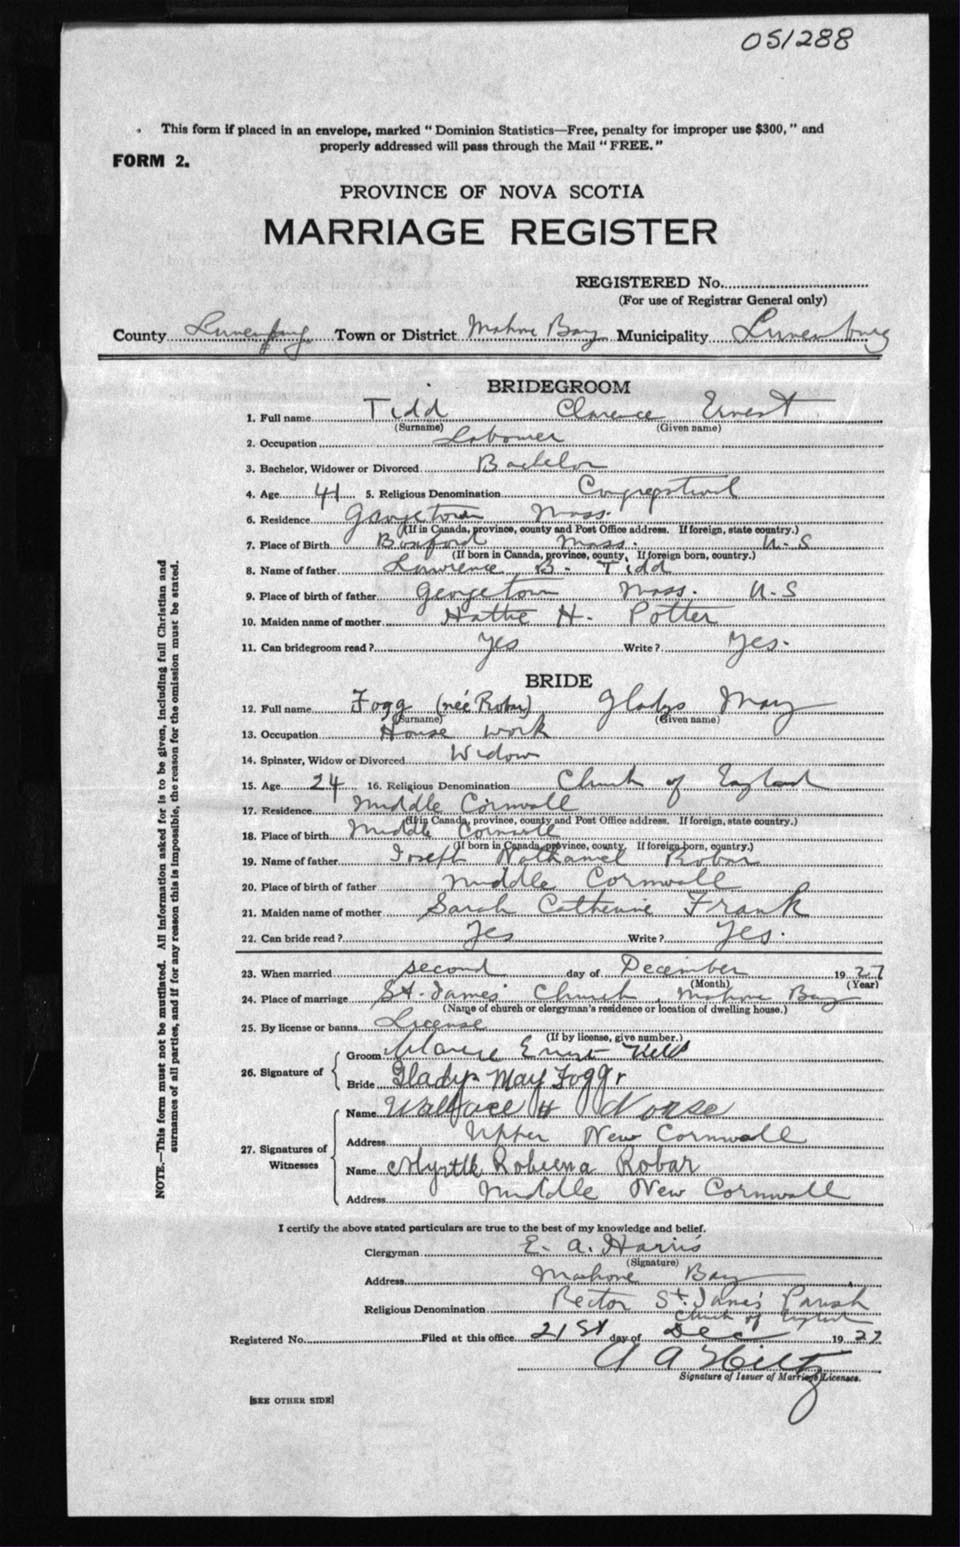 051288
This form if placed in an envelope, marked "Dominion Statistics—Free, penalty for improper use $300," and
properly addressed will pass through the Mail "FREE."
FORM 2.
PROVINCE OF NOVA SCOTIA
MARRIAGE REGISTER
REGISTERED No.
(For use of Registrar General only)
County Lunenburg Town or District Mahone Bay Municipality Lunenburg
BRIDEGROOM
1. Full name Tidd Clarence Ernest
(Surname) (Given name)
2. Occupation Labourer
3. Bachelor, Widower or Divorced Bachelor
4. Age 41 5. Religious Denomination Congregational
6. Residence Georgetown Mass.
(If in Canada, province, county and Post Office address. If foreign, state country.)
7. Place of Birth Boxford Mass. U-S
(If born in Canada, province, county, If foreign born, country.)
8. Name of father Lawrence B. Tidd
9. Place of birth of father Georgetown Mass. U-S
10. Maiden name of mother Hattie H. Potter
11. Can bridegroom read? Yes Write? Yes.
BRIDE
12. Full name Fogg (neé Robar) Gladys May
(Surname) (Given name)
13. Occupation House work
14. Spinster, Widow or Divorced Widow
15. Age 24 16. Religious Denomination Church of England
17. Residence Middle Cornwall
(If in Canada, province, county and Post Office address. If foreign, state country.)
18. Place of birth Middle Cornwall
(If born in Canada, province, county. If foreign born, country.)
19. Name of father Joseph Nathaniel Robar
20. Place of birth of father Middle Cornwall
21. Maiden name of mother Sarah Catherine Frank
22. Can bride read? Yes Write? Yes.
23. When married second day of December 1927
(Month) (Year)
24. Place of marriage St. James' Church, Mahone Bay
(Name of church or clergyman's residence or location of dwelling house.)
25. By license or banns License
(If by license, give number.)
26. Signature of Groom Clarence Ernest
Bride Gladys May Fogg
27. Signatures of Witnesses Name Wallace H
Address Upper New Cornwall
Name Myrtle Robeena Robar
Address Middle New Cornwall
I certify the above stated particulars are true to the best of my knowledge and belief.
Clergyman E. A. Harris
(Signature)
Address Mahone Bay
Religious Denomination Rector St. James Parish
Church of England
Registered No. Filed at this office 21st day of Dec 1927
A A Hiltz
Signature of Issuer of Marriage Licenses.
[SEE OTHER SIDE]
NOTE.—This form must not be mutilated. All information asked for is to be given, including full Christian and
surnames of all parties, and if for any reason this is impossible, the reason for the omission must be stated.